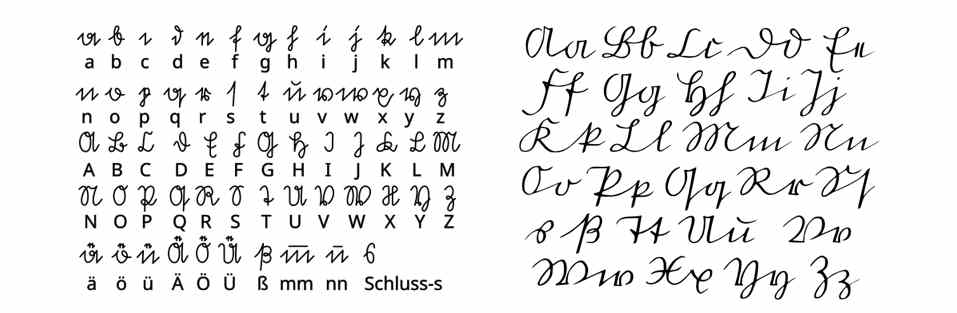 a b c d e f g h i j k l m
a b c d e f g h i j k l m
n o p q r s t u v w x y z
n o p q r s t u v w x y z
A B C D E F G H I J K L M
A B C D E F G H I J K L M
N O P Q R S T U V W X Y Z
N O P Q R S T U V W X Y Z
ä ö ü Ä Ö Ü ß m̅m̅ n̅ s
ä ö ü Ä Ö Ü ß mm nn Schluss-s
Aa Bb Cc Dd Ee
Ff Gg Hh Ii Jj
Kk Ll Mm Nn
Oo Pp Qq Rr Sſ
s ß Tt Uu Vv
Ww Xx Yy Zz